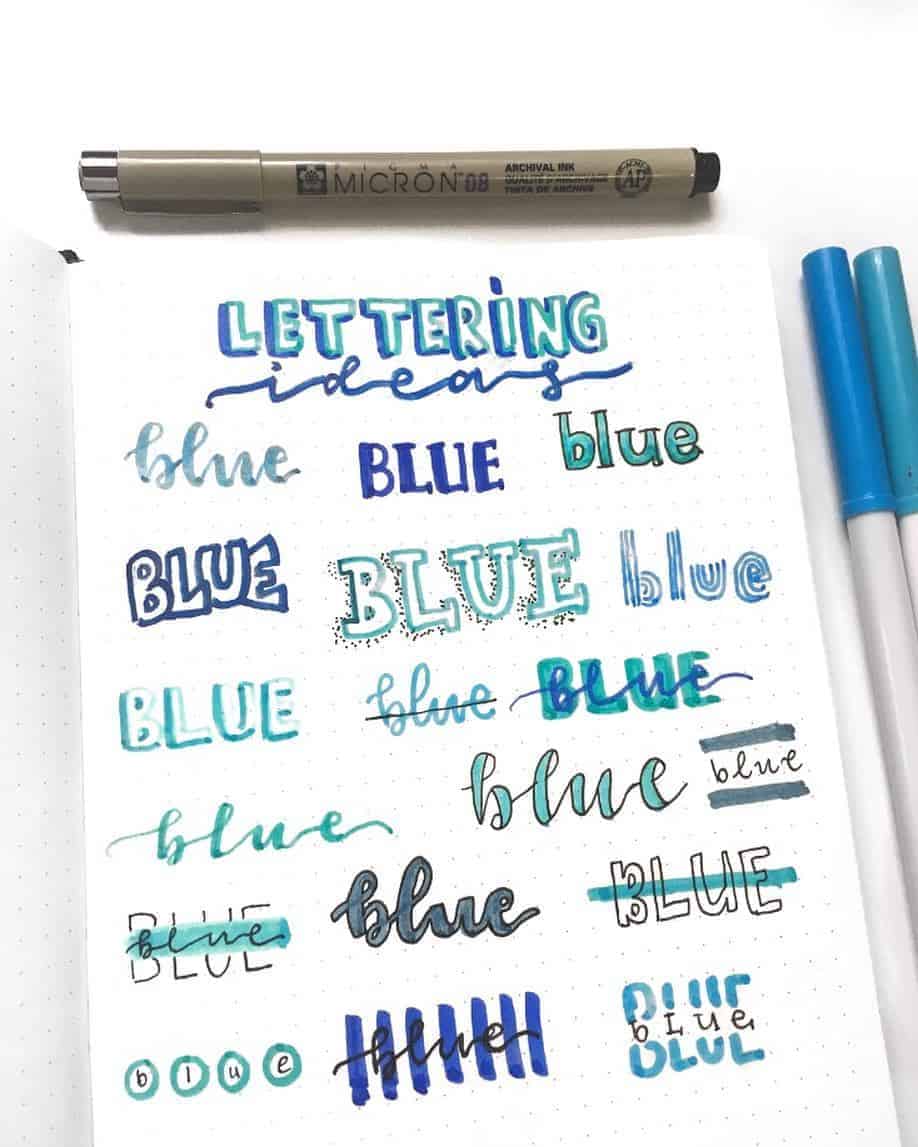 PIGMA
MICRON™ 08
ARCHIVAL INK
QUALITÉ D'ARCHIVAGE
TINTA DE ARCHIVO
ACMI
AP
LETTERING
ideas
blue BLUE blue
BLUE BLUE blue
BLUE blue BLUE blue
blue blue
blue
BLUE blue blue BLUE
b l u e blue BLUE bLue